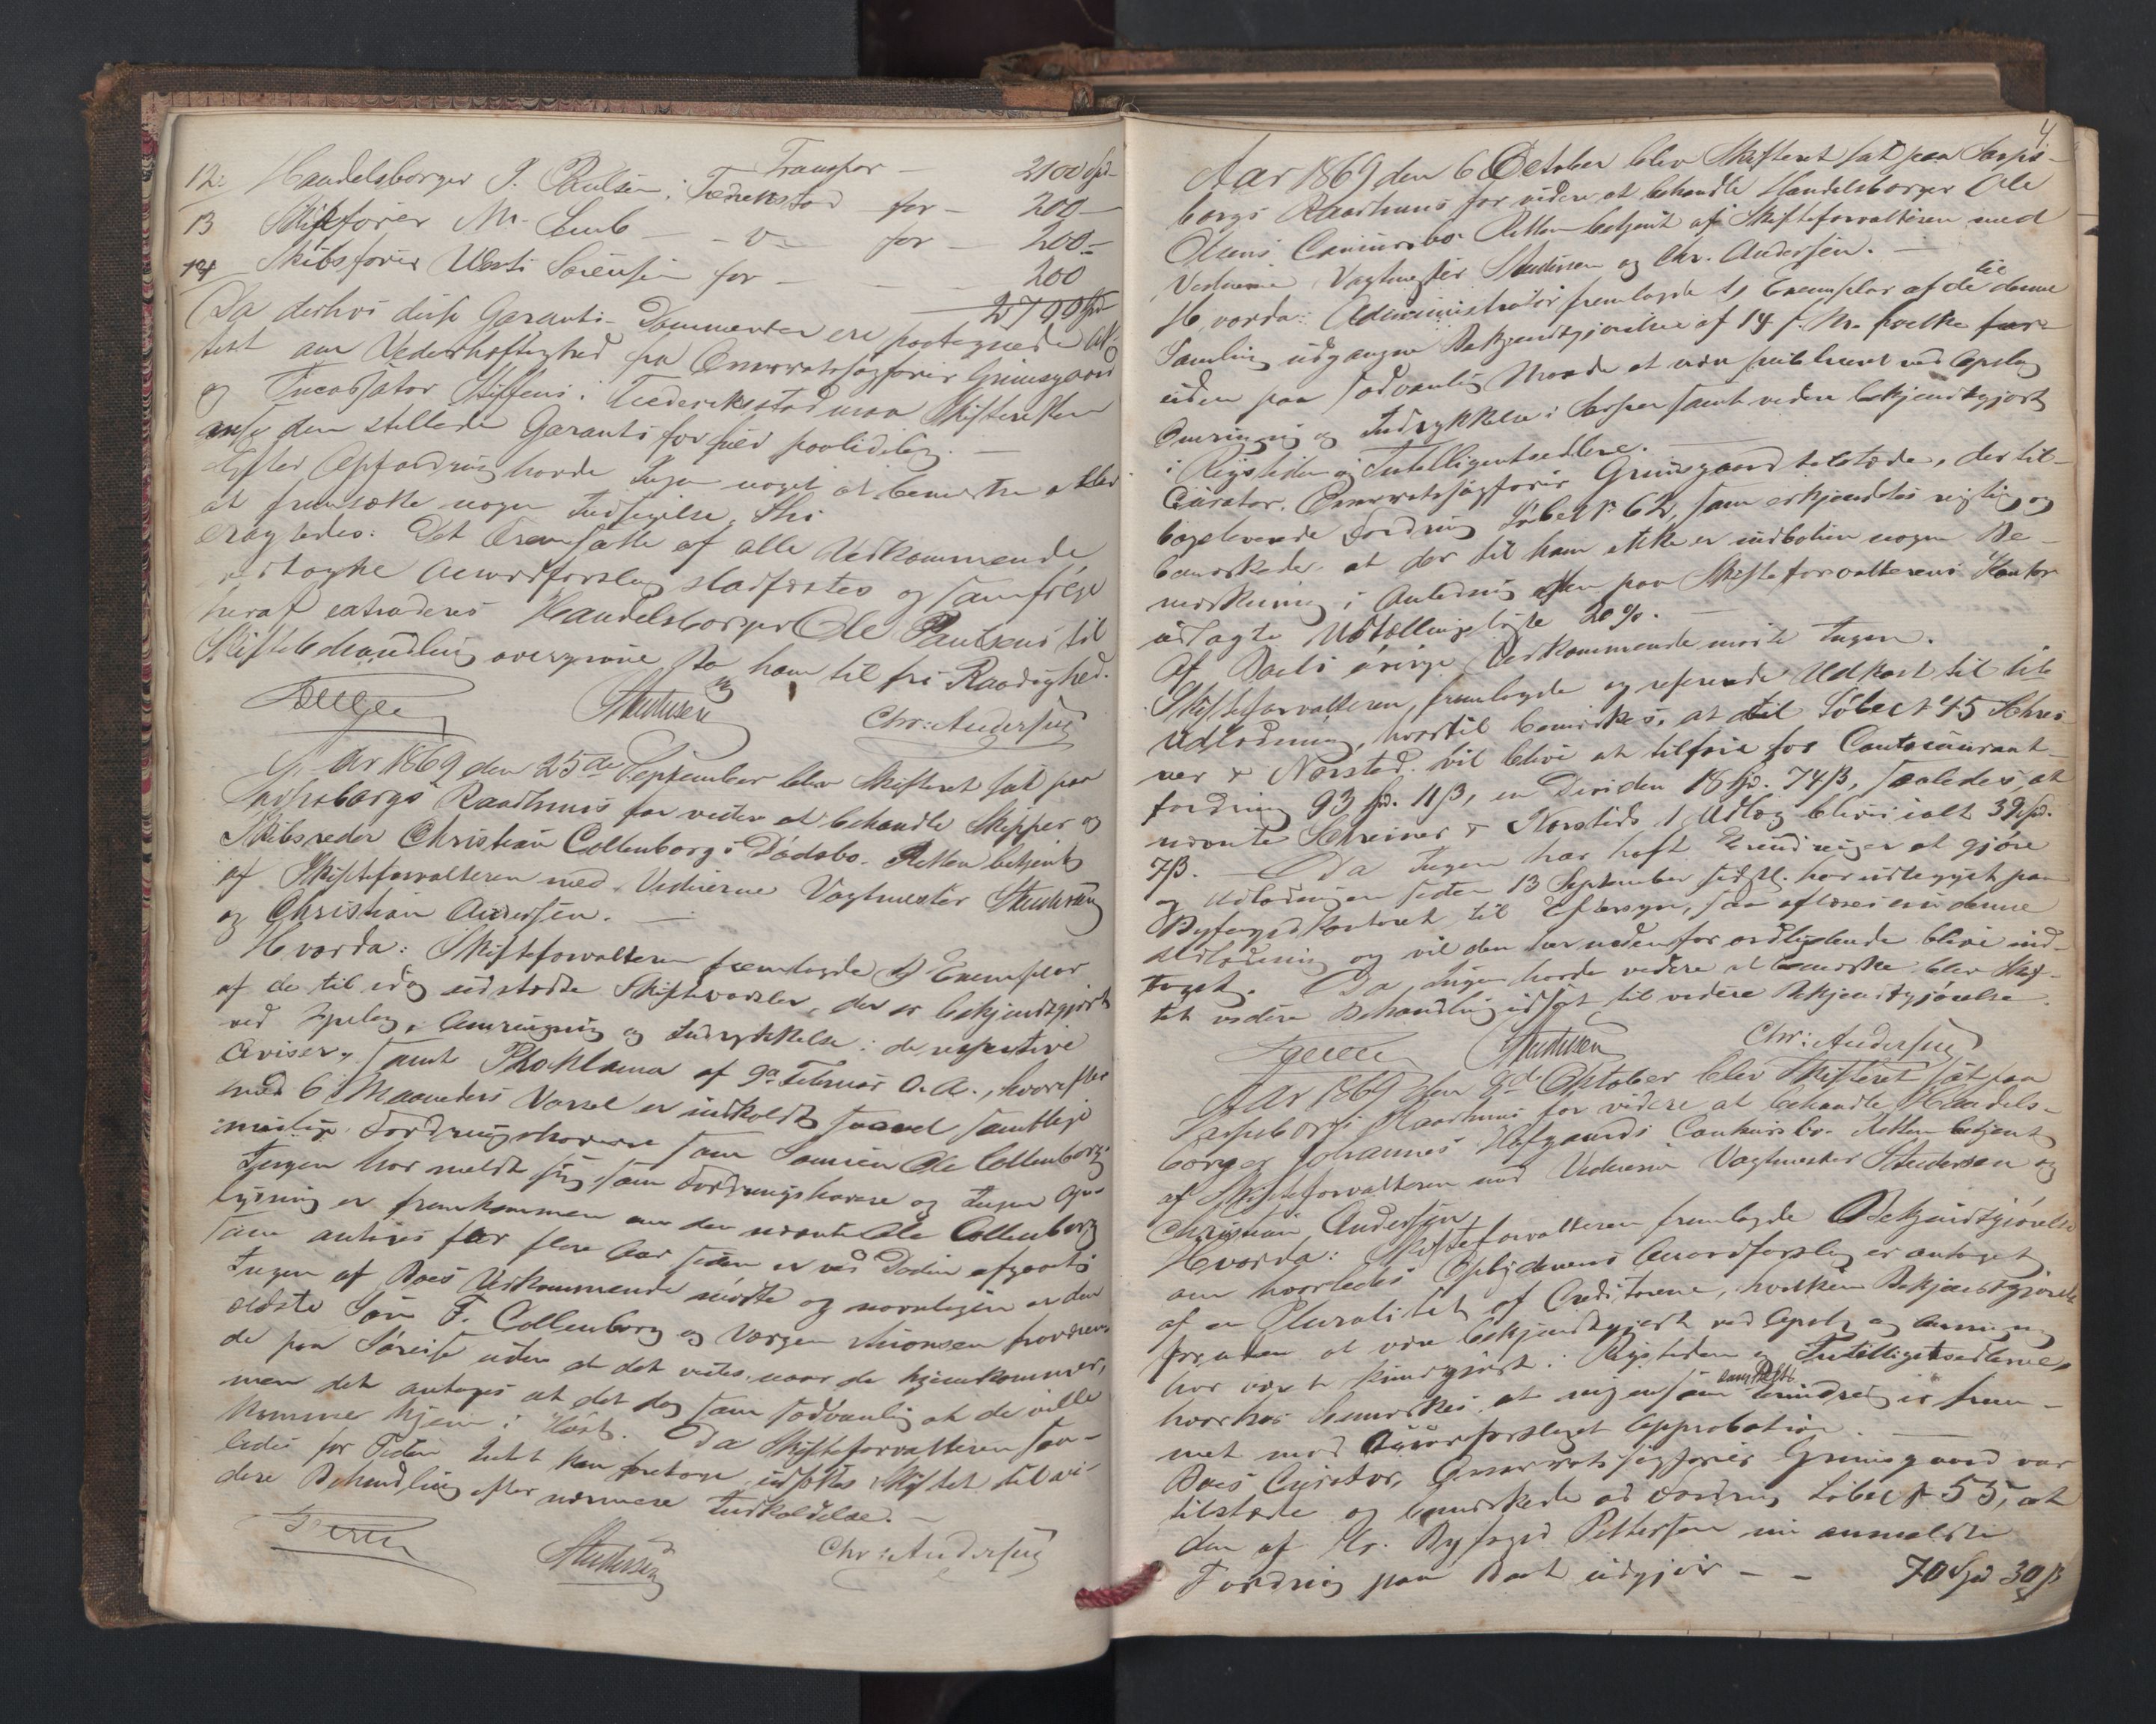 Transfor — 2100 Spd
12. Handelsborger J. Paulsen i Fredrikstad for — 200 —
13 Skibsfører M. — v — for — 200 —
14 Skibsfører Sørensen for — 200
2700 Spd
Da derhos disse Garanti-Dommenter ere paategnede At-
test om Vederhæftighed fra Overretssagfører Grimsgaard
og Incassator Steffens i Frederiksstad maa Skifteretten
anse den stillede Garanti for fuld paalidelig. —
Efter Opfordring havde Ingen noget at bemærke eller
at fremsætte nogen Indsigelse, thi
eragtedes: Det fremsatte af alle Vedkommende
vedtagne Accordforslag stadfæstes og som følge
heraf extraderes Handelsborger Ole Paulsens til
Skiftebehandling overgivne Bo ham til fri Raadighed.
Studersen Chr: Andersen
Aar 1869 den 25de September blev Skifteret sat paa
Sarpsborgs Raadhuus for videre at behandle Skipper og
Skibsreder Christian Collenborgs Dødsbo. Retten betjent
af Skifteforvalteren med Vidnerne Vagtmester Studersen
og Christian Andersen. —
Hvorda: Skifteforvalteren fremlagde 1 Exemplar
af de til idag udstædte Skiftevarsler, der er bekjendtgjort
ved Opslag, Omringning og Indrykkelse i de respective
Aviser, samt Proklama af 9de Februar d. A., hvorefter
med 6 Maaneders Varsel er indkaldt saavel samtlige
mulige Fordringshavere som Sønnen Ole Collenborg.
Ingen har meldt sig som Fordringshavere og Ingen Op-
lysning er fremkommen om den nævnte Ole Collenborg
som antages for flere Aar siden er ved Døden afgaaet.
Ingen af Boets Vedkommende mødte og navnligen er den
ældste Søn F. Collenborg og Værgen Simonsen fraværen-
de paa Søreise uden at det vides, naar de hjemkommer,
men det antages at det dog som sædvanlig at de ville
komme hjem i Høst. Da Skifteforvalteren saa-
ledes for Tiden Intet kan foretage, udsættes Skiftet til vi-
dere Behandling efter nærmere Indkaldelse. —
Studersen Chr: Andersen
4
Aar 1869 den 6 October blev Skifteret sat paa Sarps-
borgs Raadhuus for videre at behandle Handelsborger Ole
Olsens Concursbo. Retten betjent af Skifteforvalteren med
Vidnerne Vagtmester Studersen og Chr. Andersen. —
Hvorda: Administrator fremlagde 1 Exemplar af de til denne
Samling udgangne Bekjendtgjørelse af 14 f. M. hvilke for-
uden paa sædvanlig Maade at være publiceret ved Opslag
Omringning og Indrykkelse i Sarpen samt videre bekjendtgjort
i Rigstidende og Intelligentsedlerne.
Curator, Overretssagfører Grimsgaard tilstede, der til-
bageleverede Fordring Løbe No 62, som erkjendtes rigtig, og
bemærkede, at der til ham ikke er indbetalt nogen Be-
mærkning i Anledning af den paa Skifteforvalterens Kontor
udlagte Udtællingsliste 20%. —
Af Boets øvrige Vedkommende mødte Ingen.
Skifteforvalteren fremlagde og refererede Udkast til
Udlodning, hvortil bemærkes, at til Løbe No 45 Schrei-
ner & Norsted vil blive at tilføie for Contocourant-
fordring 93 Spd. 11 ß, en Dividen 18 Spd. 74 ß, saaledes, at
nævnte Schreiner & Norsteds Udlæg bliver ialt 39 Spd.
7 ß. — Da Ingen har haft Erindringer at gjøre
og Udlodningen siden 13 September sidstl. har udlagt paa
Byfogedkontoret til Eftersyn, saa aflæses nu denne
Udlodning og vil den her nedenfor ordlydende blive ind-
taget. Da Ingen havde videre at bemærke blev Skif-
tet videre Behandling udsat til videre Bekjendtgjørelse.
Studersen Chr: Andersen
Aar 1869 den 8de Oktober blev Skifteret sat paa
Sarpsborgs Raadhuus for videre at behandle Handels-
borger Johannes Hafgaards Concursbo. Retten betjent
af Skifteforvalteren med Vidnerne Vagtmester Studersen og
Christian Andersen.
Hvorda: Skifteforvalteren fremlagde Bekjendtgjørelse
om hvorledes Opbyderens Accordforslag er antaget
af en Pluralitet af Creditorerne, hvilken Bekjendtgjørelse
foruden at være bekjendtgjort ved Opslag og Omringning
har været kundgjort i Rigstidende og Intelligentsedlerne,
hvorhos bemærkes, at ingensomhelst Erindring er frem-
met mod Accordforslaget Approbation. —
Boets Curator, Overretssagfører Grimsgaard var
tilstede og bemærkede ad Fordring Løbe No 55, at
den af Hr. Byfoged Pettersen nu anmeldte
Fordring paa Boet udgjør — — 70 Spd 30 ß